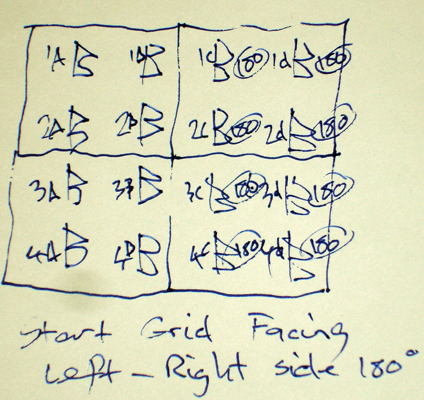 1A B 1B B 1C B 180 1d B 180
2A B 2B B 2C B 180 2d B 180
3A B 3B B 3C B 180 3d B 180
4A B 4B B 4C B 180 4d B 180
Start Grid Facing
Left - Right side 180°